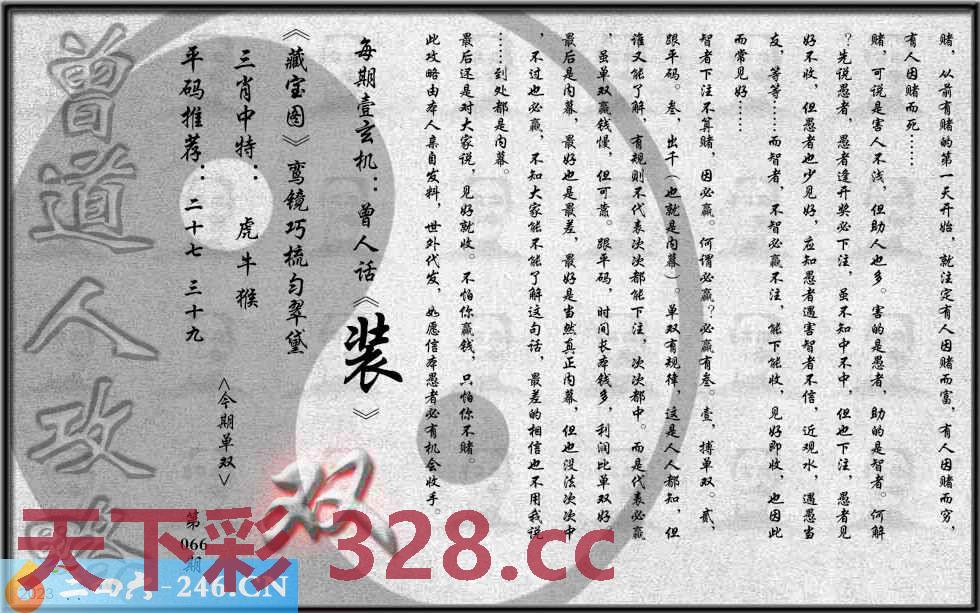 赌，从前有赌的第一天开始，就注定有人因赌而富，有人因赌而穷，
有人因赌而死……
赌，可说是害人不浅，但助人也多。害的是愚者，助的是智者。何解
？先说愚者，愚者逢开奖必下注，虽不知中不中，但也下注，愚者见
好不收，但愚者也少见好，应知愚者遇害智者不信，近观水，遇愚当
友，等等……而智者，不智必赢不注，能下能收，见好即收，也因此
而常见好……
智者下注不算赌，因必赢。何谓必赢？必赢有叁。壹，搏单双。贰，
跟平码。叁，出千（也就是内幕）。单双有规律，这是人人都知，但
谁又能了解，有规则不代表次次都能下注，次次都中。而是代表必赢
，虽单双赢钱慢，但可靠。跟平码，时间长本钱多，利润比单双好。
最后是内幕，最好也是最差，最好是当然真正内幕，但也没法次次中
，不过也必赢，不知大家能不能了解这句话，最差的相信也不用我说
……到处都是内幕。
最后还是对大家说，见好就收。不怕你赢钱，只怕你不赌。
此攻略由本人亲自发料，世外代发，如愿信本愚者必有机会收手。
每期壹玄机：曾人话《装》
《藏宝图》鸾镜巧梳匀翠黛
三肖中特：虎牛猴
平码推荐：二十七 三十九
<今期单双>
双
第066期
曾道人攻略
天下彩 328.cc
二四六-246.CN
2023